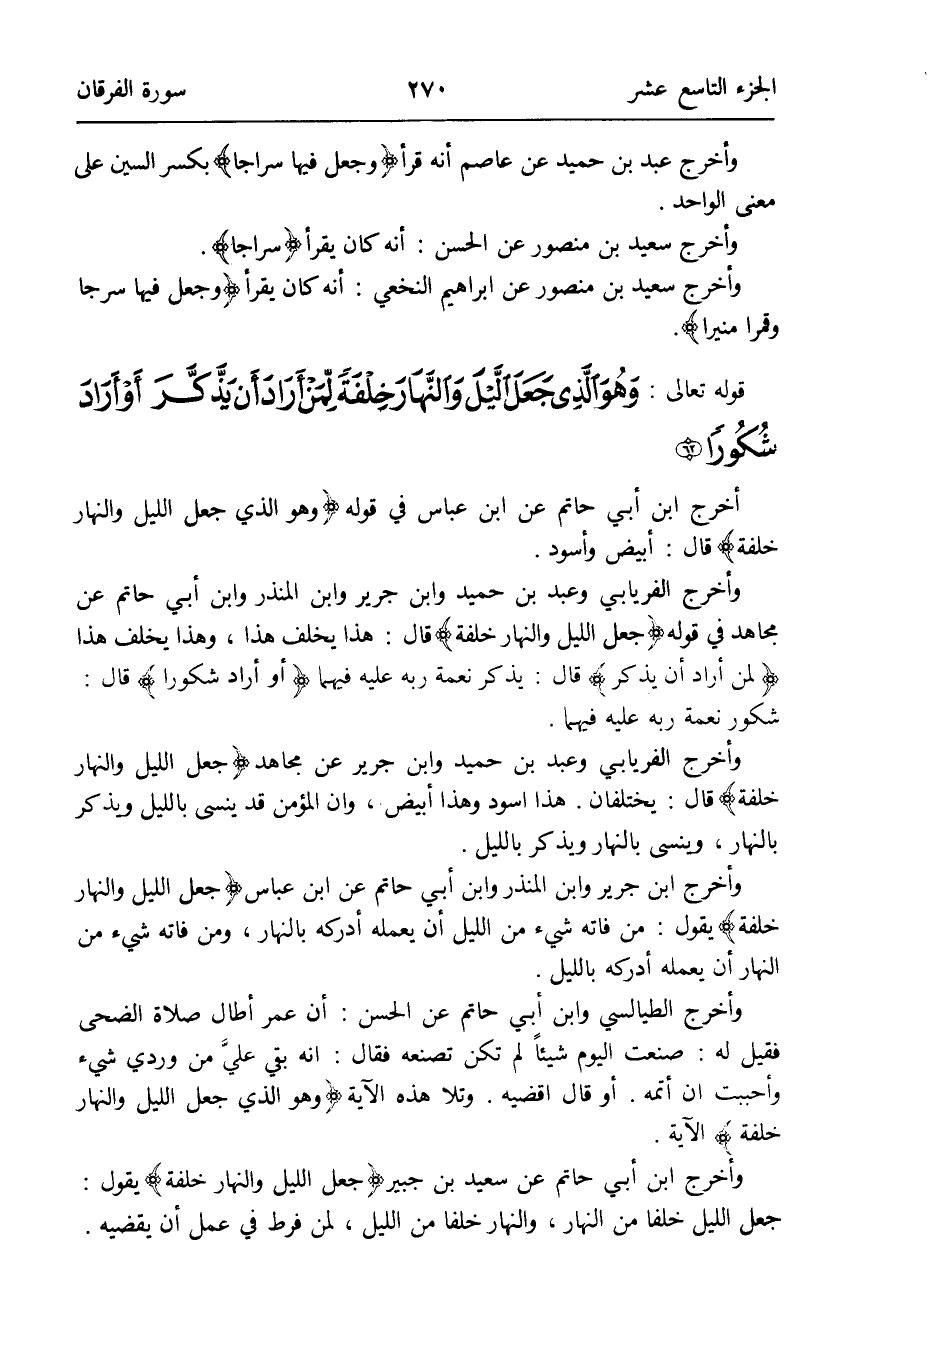 الجزء التاسع عشر ٢٧٠ سورة الفرقان
وأخرج عبد بن حميد عن عاصم أنه قرأ ﴿وجعل فيها سراجا﴾ بكسر السين على
معنى الواحد .
وأخرج سعيد بن منصور عن الحسن : أنه كان يقرأ ﴿سراجا﴾ .
وأخرج سعيد بن منصور عن ابراهيم النخعي : أنه كان يقرأ ﴿وجعل فيها سرجا
وقمرا منيرا﴾ .
قوله تعالى : وَهُوَ الَّذِي جَعَلَ الَّيْلَ وَالنَّهَارَ خِلْفَةً لِّمَنْ أَرَادَ أَن يَذَّكَّرَ أَوْ أَرَادَ
شُكُورًا ﴿٦٢﴾
أخرج ابن أبي حاتم عن ابن عباس في قوله ﴿وهو الذي جعل الليل والنهار
خلفة﴾ قال : أبيض وأسود .
وأخرج الفريابي وعبد بن حميد وابن جرير وابن المنذر وابن أبي حاتم عن
مجاهد في قوله ﴿جعل الليل والنهار خلفة﴾ قال : هذا يخلف هذا ، وهذا يخلف هذا
﴿ لمن أراد أن يذكر ﴾ قال : يذكر نعمة ربه عليه فيهما ﴿ أو أراد شكورا ﴾ قال :
شكور نعمة ربه عليه فيهما .
وأخرج الفريابي وعبد بن حميد وابن جرير عن مجاهد ﴿جعل الليل والنهار
خلفة﴾ قال : يختلفان . هذا اسود وهذا أبيض ، وان المؤمن قد ينسى بالليل ويذكر
بالنهار ، وينسى بالنهار ويذكر بالليل .
وأخرج ابن جرير وابن المنذر وابن أبي حاتم عن ابن عباس ﴿جعل الليل والنهار
خلفة﴾ يقول : من فاته شيء من الليل أن يعمله أدركه بالنهار ، ومن فاته شيء من
النهار أن يعمله أدركه بالليل .
وأخرج الطيالسي وابن أبي حاتم عن الحسن : أن عمر أطال صلاة الضحى
فقيل له : صنعت اليوم شيئاً لم تكن تصنعه فقال : انه بقي عليَّ من وردي شيء
وأحببت ان أتمه . أو قال اقضيه . وتلا هذه الآية ﴿وهو الذي جعل الليل والنهار
خلفة ﴾ الآية .
وأخرج ابن أبي حاتم عن سعيد بن جبير ﴿جعل الليل والنهار خلفة﴾ يقول :
جعل الليل خلفا من النهار ، والنهار خلفا من الليل ، لمن فرط في عمل أن يقضيه .